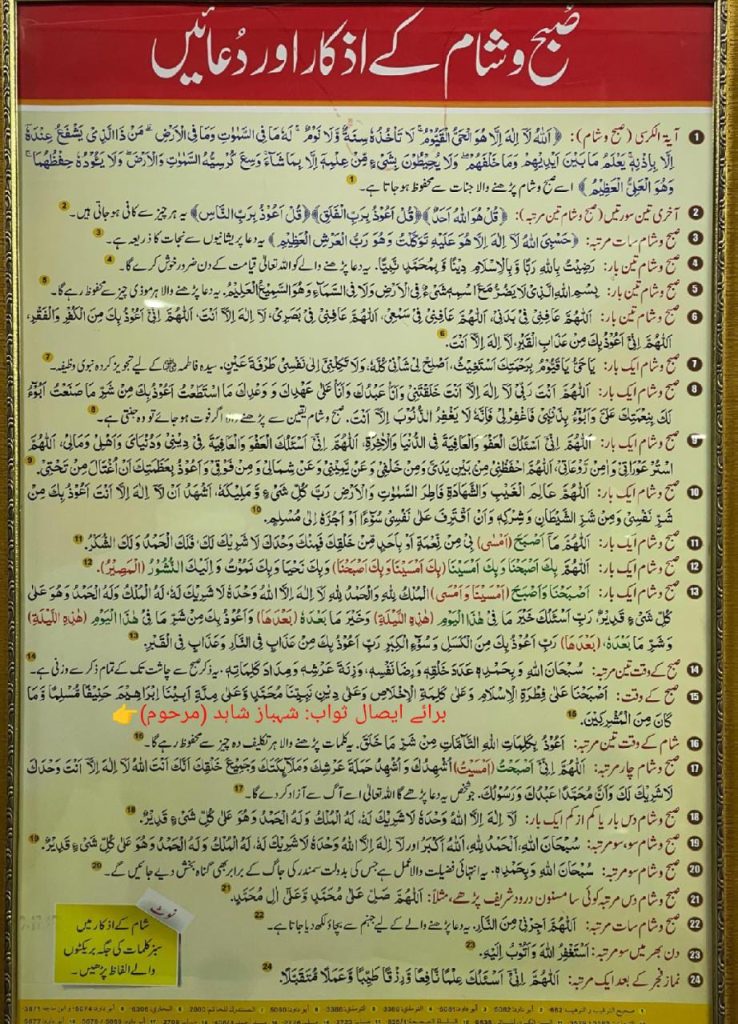 صُبح و شام کے اذکار اور دُعائیں
1 آیۃ الکرسی (صبح و شام): ﴿اَللّٰهُ لَآ اِلٰهَ اِلَّا هُوَ الْحَيُّ الْقَيُّوْمُ لَا تَاْخُذُهٗ سِنَةٌ وَّلَا نَوْمٌ لَهٗ مَا فِي السَّمٰوٰتِ وَمَا فِي الْاَرْضِ مَنْ ذَا الَّذِيْ يَشْفَعُ عِنْدَهٗٓ
اِلَّا بِاِذْنِهٖ يَعْلَمُ مَا بَيْنَ اَيْدِيْهِمْ وَمَا خَلْفَهُمْ وَلَا يُحِيْطُوْنَ بِشَيْءٍ مِّنْ عِلْمِهٖٓ اِلَّا بِمَا شَآءَ وَسِعَ كُرْسِيُّهُ السَّمٰوٰتِ وَالْاَرْضَ وَلَا يَـُٔوْدُهٗ حِفْظُهُمَا
وَهُوَ الْعَلِيُّ الْعَظِيْمُ﴾ اسے صبح و شام پڑھنے والا جنات سے محفوظ ہو جاتا ہے۔ 1
2 آخری تین سورتیں (صبح و شام تین مرتبہ): ﴿قُلْ هُوَ اللّٰهُ اَحَدٌ﴾ ﴿قُلْ اَعُوْذُ بِرَبِّ الْفَلَقِ﴾ ﴿قُلْ اَعُوْذُ بِرَبِّ النَّاسِ﴾ یہ ہر چیز سے کافی ہو جاتی ہیں۔ 2
3 صبح و شام سات مرتبہ: ﴿حَسْبِيَ اللّٰهُ لَآ اِلٰهَ اِلَّا هُوَ عَلَيْهِ تَوَكَّلْتُ وَهُوَ رَبُّ الْعَرْشِ الْعَظِيْمِ﴾ یہ دعا پریشانیوں سے نجات کا ذریعہ ہے۔ 3
4 صبح و شام تین بار: رَضِيْتُ بِاللّٰهِ رَبًّا وَّبِالْاِسْلَامِ دِيْنًا وَّبِمُحَمَّدٍ نَّبِيًّا. یہ دعا پڑھنے والے کو اللہ تعالیٰ قیامت کے دن ضرور خوش کرے گا۔ 4
5 صبح و شام تین بار: بِسْمِ اللّٰهِ الَّذِيْ لَا يَضُرُّ مَعَ اسْمِهٖ شَيْءٌ فِي الْاَرْضِ وَلَا فِي السَّمَآءِ وَهُوَ السَّمِيْعُ الْعَلِيْمُ. یہ دعا پڑھنے والا ہر موذی چیز سے محفوظ رہے گا۔ 5
6 صبح و شام تین بار: اَللّٰهُمَّ عَافِنِيْ فِيْ بَدَنِيْ، اَللّٰهُمَّ عَافِنِيْ فِيْ سَمْعِيْ، اَللّٰهُمَّ عَافِنِيْ فِيْ بَصَرِيْ، لَآ اِلٰهَ اِلَّآ اَنْتَ، اَللّٰهُمَّ اِنِّيْٓ اَعُوْذُ بِكَ مِنَ الْكُفْرِ وَالْفَقْرِ،
اَللّٰهُمَّ اِنِّيْٓ اَعُوْذُ بِكَ مِنْ عَذَابِ الْقَبْرِ، لَآ اِلٰهَ اِلَّآ اَنْتَ. 6
7 صبح و شام ایک بار: يَا حَيُّ يَا قَيُّوْمُ بِرَحْمَتِكَ اَسْتَغِيْثُ، اَصْلِحْ لِيْ شَاْنِيْ كُلَّهٗ، وَلَا تَكِلْنِيْٓ اِلٰى نَفْسِيْ طَرْفَةَ عَيْنٍ. سیدہ فاطمہ کے لیے تجویز کردہ نبوی وظیفہ۔ 7
8 صبح و شام ایک بار: اَللّٰهُمَّ اَنْتَ رَبِّيْ لَآ اِلٰهَ اِلَّآ اَنْتَ خَلَقْتَنِيْ وَاَنَا عَبْدُكَ وَاَنَا عَلٰى عَهْدِكَ وَوَعْدِكَ مَا اسْتَطَعْتُ اَعُوْذُ بِكَ مِنْ شَرِّ مَا صَنَعْتُ اَبُوْٓءُ
لَكَ بِنِعْمَتِكَ عَلَيَّ وَاَبُوْٓءُ بِذَنْبِيْ فَاغْفِرْ لِيْ فَاِنَّهٗ لَا يَغْفِرُ الذُّنُوْبَ اِلَّآ اَنْتَ. صبح و شام یقین سے پڑھنے والا اگر فوت ہو جائے تو وہ جنتی ہے۔ 8
9 صبح و شام ایک بار: اَللّٰهُمَّ اِنِّيْٓ اَسْئَلُكَ الْعَفْوَ وَالْعَافِيَةَ فِي الدُّنْيَا وَالْاٰخِرَةِ، اَللّٰهُمَّ اِنِّيْٓ اَسْئَلُكَ الْعَفْوَ وَالْعَافِيَةَ فِيْ دِيْنِيْ وَدُنْيَايَ وَاَهْلِيْ وَمَالِيْ، اَللّٰهُمَّ
اسْتُرْ عَوْرَاتِيْ وَاٰمِنْ رَّوْعَاتِيْ، اَللّٰهُمَّ احْفَظْنِيْ مِنْ بَيْنِ يَدَيَّ وَمِنْ خَلْفِيْ وَعَنْ يَّمِيْنِيْ وَعَنْ شِمَالِيْ وَمِنْ فَوْقِيْ وَاَعُوْذُ بِعَظَمَتِكَ اَنْ اُغْتَالَ مِنْ تَحْتِيْ. 9
10 صبح و شام ایک بار: اَللّٰهُمَّ عَالِمَ الْغَيْبِ وَالشَّهَادَةِ فَاطِرَ السَّمٰوٰتِ وَالْاَرْضِ رَبَّ كُلِّ شَيْءٍ وَّمَلِيْكَهٗ، اَشْهَدُ اَنْ لَّآ اِلٰهَ اِلَّآ اَنْتَ اَعُوْذُ بِكَ مِنْ
شَرِّ نَفْسِيْ وَمِنْ شَرِّ الشَّيْطَانِ وَشِرْكِهٖ وَاَنْ اَقْتَرِفَ عَلٰى نَفْسِيْ سُوْٓءًا اَوْ اَجُرَّهٗٓ اِلٰى مُسْلِمٍ. 10
11 صبح و شام ایک بار: اَللّٰهُمَّ مَآ اَصْبَحَ (اَمْسٰى) بِيْ مِنْ نِّعْمَةٍ اَوْ بِاَحَدٍ مِّنْ خَلْقِكَ فَمِنْكَ وَحْدَكَ لَا شَرِيْكَ لَكَ، فَلَكَ الْحَمْدُ وَلَكَ الشُّكْرُ. 11
12 صبح و شام ایک بار: اَللّٰهُمَّ بِكَ اَصْبَحْنَا وَبِكَ اَمْسَيْنَا (بِكَ اَمْسَيْنَا وَبِكَ اَصْبَحْنَا) وَبِكَ نَحْيَا وَبِكَ نَمُوْتُ وَاِلَيْكَ النُّشُوْرُ (الْمَصِيْرُ). 12
13 صبح و شام ایک بار: اَصْبَحْنَا وَاَصْبَحَ (اَمْسَيْنَا وَاَمْسٰى) الْمُلْكُ لِلّٰهِ وَالْحَمْدُ لِلّٰهِ لَآ اِلٰهَ اِلَّا اللّٰهُ وَحْدَهٗ لَا شَرِيْكَ لَهٗ، لَهُ الْمُلْكُ وَلَهُ الْحَمْدُ وَهُوَ عَلٰى
كُلِّ شَيْءٍ قَدِيْرٌ، رَبِّ اَسْئَلُكَ خَيْرَ مَا فِيْ هٰذَا الْيَوْمِ (هٰذِهِ اللَّيْلَةِ) وَخَيْرَ مَا بَعْدَهٗ (بَعْدَهَا) وَاَعُوْذُ بِكَ مِنْ شَرِّ مَا فِيْ هٰذَا الْيَوْمِ (هٰذِهِ اللَّيْلَةِ)
وَشَرِّ مَا بَعْدَهٗ، (بَعْدَهَا) رَبِّ اَعُوْذُ بِكَ مِنَ الْكَسَلِ وَسُوْٓءِ الْكِبَرِ رَبِّ اَعُوْذُ بِكَ مِنْ عَذَابٍ فِي النَّارِ وَعَذَابٍ فِي الْقَبْرِ. 13
14 صبح کے وقت تین مرتبہ: سُبْحَانَ اللّٰهِ وَبِحَمْدِهٖ عَدَدَ خَلْقِهٖ وَرِضَا نَفْسِهٖ، وَزِنَةَ عَرْشِهٖ وَمِدَادَ كَلِمَاتِهٖ. یہ ذکر صبح سے چاشت تک کے تمام ذکر سے وزنی ہے۔ 14
15 صبح کے وقت: اَصْبَحْنَا عَلٰى فِطْرَةِ الْاِسْلَامِ وَعَلٰى كَلِمَةِ الْاِخْلَاصِ وَعَلٰى دِيْنِ نَبِيِّنَا مُحَمَّدٍ وَّعَلٰى مِلَّةِ اَبِيْنَآ اِبْرَاهِيْمَ حَنِيْفًا مُّسْلِمًا وَّمَا
كَانَ مِنَ الْمُشْرِكِيْنَ. 15 برائے ایصال ثواب: شہباز شاہد (مرحوم)👉
16 شام کے وقت تین مرتبہ: اَعُوْذُ بِكَلِمَاتِ اللّٰهِ التَّآمَّاتِ مِنْ شَرِّ مَا خَلَقَ. یہ کلمات پڑھنے والا ہر تکلیف دہ چیز سے محفوظ رہے گا۔ 16
17 صبح و شام چار مرتبہ: اَللّٰهُمَّ اِنِّيْٓ اَصْبَحْتُ (اَمْسَيْتُ) اُشْهِدُكَ وَاُشْهِدُ حَمَلَةَ عَرْشِكَ وَمَلَآئِكَتَكَ وَجَمِيْعَ خَلْقِكَ اَنَّكَ اَنْتَ اللّٰهُ لَآ اِلٰهَ اِلَّآ اَنْتَ وَحْدَكَ
لَا شَرِيْكَ لَكَ وَاَنَّ مُحَمَّدًا عَبْدُكَ وَرَسُوْلُكَ. جو شخص یہ دعا پڑھے گا اللہ تعالیٰ اسے آگ سے آزاد کر دے گا۔ 17
18 صبح و شام دس بار یا کم از کم ایک بار: لَآ اِلٰهَ اِلَّا اللّٰهُ وَحْدَهٗ لَا شَرِيْكَ لَهٗ، لَهُ الْمُلْكُ وَلَهُ الْحَمْدُ وَهُوَ عَلٰى كُلِّ شَيْءٍ قَدِيْرٌ. 18
19 صبح و شام سو، سو مرتبہ: سُبْحَانَ اللّٰهِ، اَلْحَمْدُ لِلّٰهِ، اَللّٰهُ اَكْبَرُ اور لَآ اِلٰهَ اِلَّا اللّٰهُ وَحْدَهٗ لَا شَرِيْكَ لَهٗ، لَهُ الْمُلْكُ وَلَهُ الْحَمْدُ وَهُوَ عَلٰى كُلِّ شَيْءٍ قَدِيْرٌ. 19
20 صبح و شام سو مرتبہ: سُبْحَانَ اللّٰهِ وَبِحَمْدِهٖ. یہ انتہائی فضیلت والا عمل ہے جس کی بدولت سمندر کی جاگ کے برابر بھی گناہ بخش دیے جائیں گے۔ 20
21 صبح و شام دس مرتبہ کوئی سا مسنون درود شریف پڑھے، مثلاً: اَللّٰهُمَّ صَلِّ عَلٰى مُحَمَّدٍ وَّعَلٰٓى اٰلِ مُحَمَّدٍ. 21
22 صبح و شام سات مرتبہ: اَللّٰهُمَّ اَجِرْنِيْ مِنَ النَّارِ. یہ دعا پڑھنے والے کے لیے جہنم سے بچاؤ لکھ دیا جاتا ہے۔ 22
23 دن بھر میں سو مرتبہ: اَسْتَغْفِرُ اللّٰهَ وَاَتُوْبُ اِلَيْهِ. 23
24 نمازِ فجر کے بعد ایک مرتبہ: اَللّٰهُمَّ اِنِّيْٓ اَسْئَلُكَ عِلْمًا نَّافِعًا وَّرِزْقًا طَيِّبًا وَّعَمَلًا مُّتَقَبَّلًا. 24
نوٹ
شام کے اذکار میں
سبز کلمات کی جگہ بریکٹوں
والے الفاظ پڑھیں۔